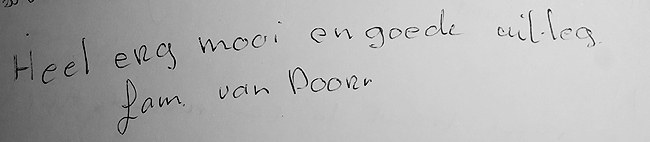 Heel erg mooi en goede uitleg.
fam. van Doorn